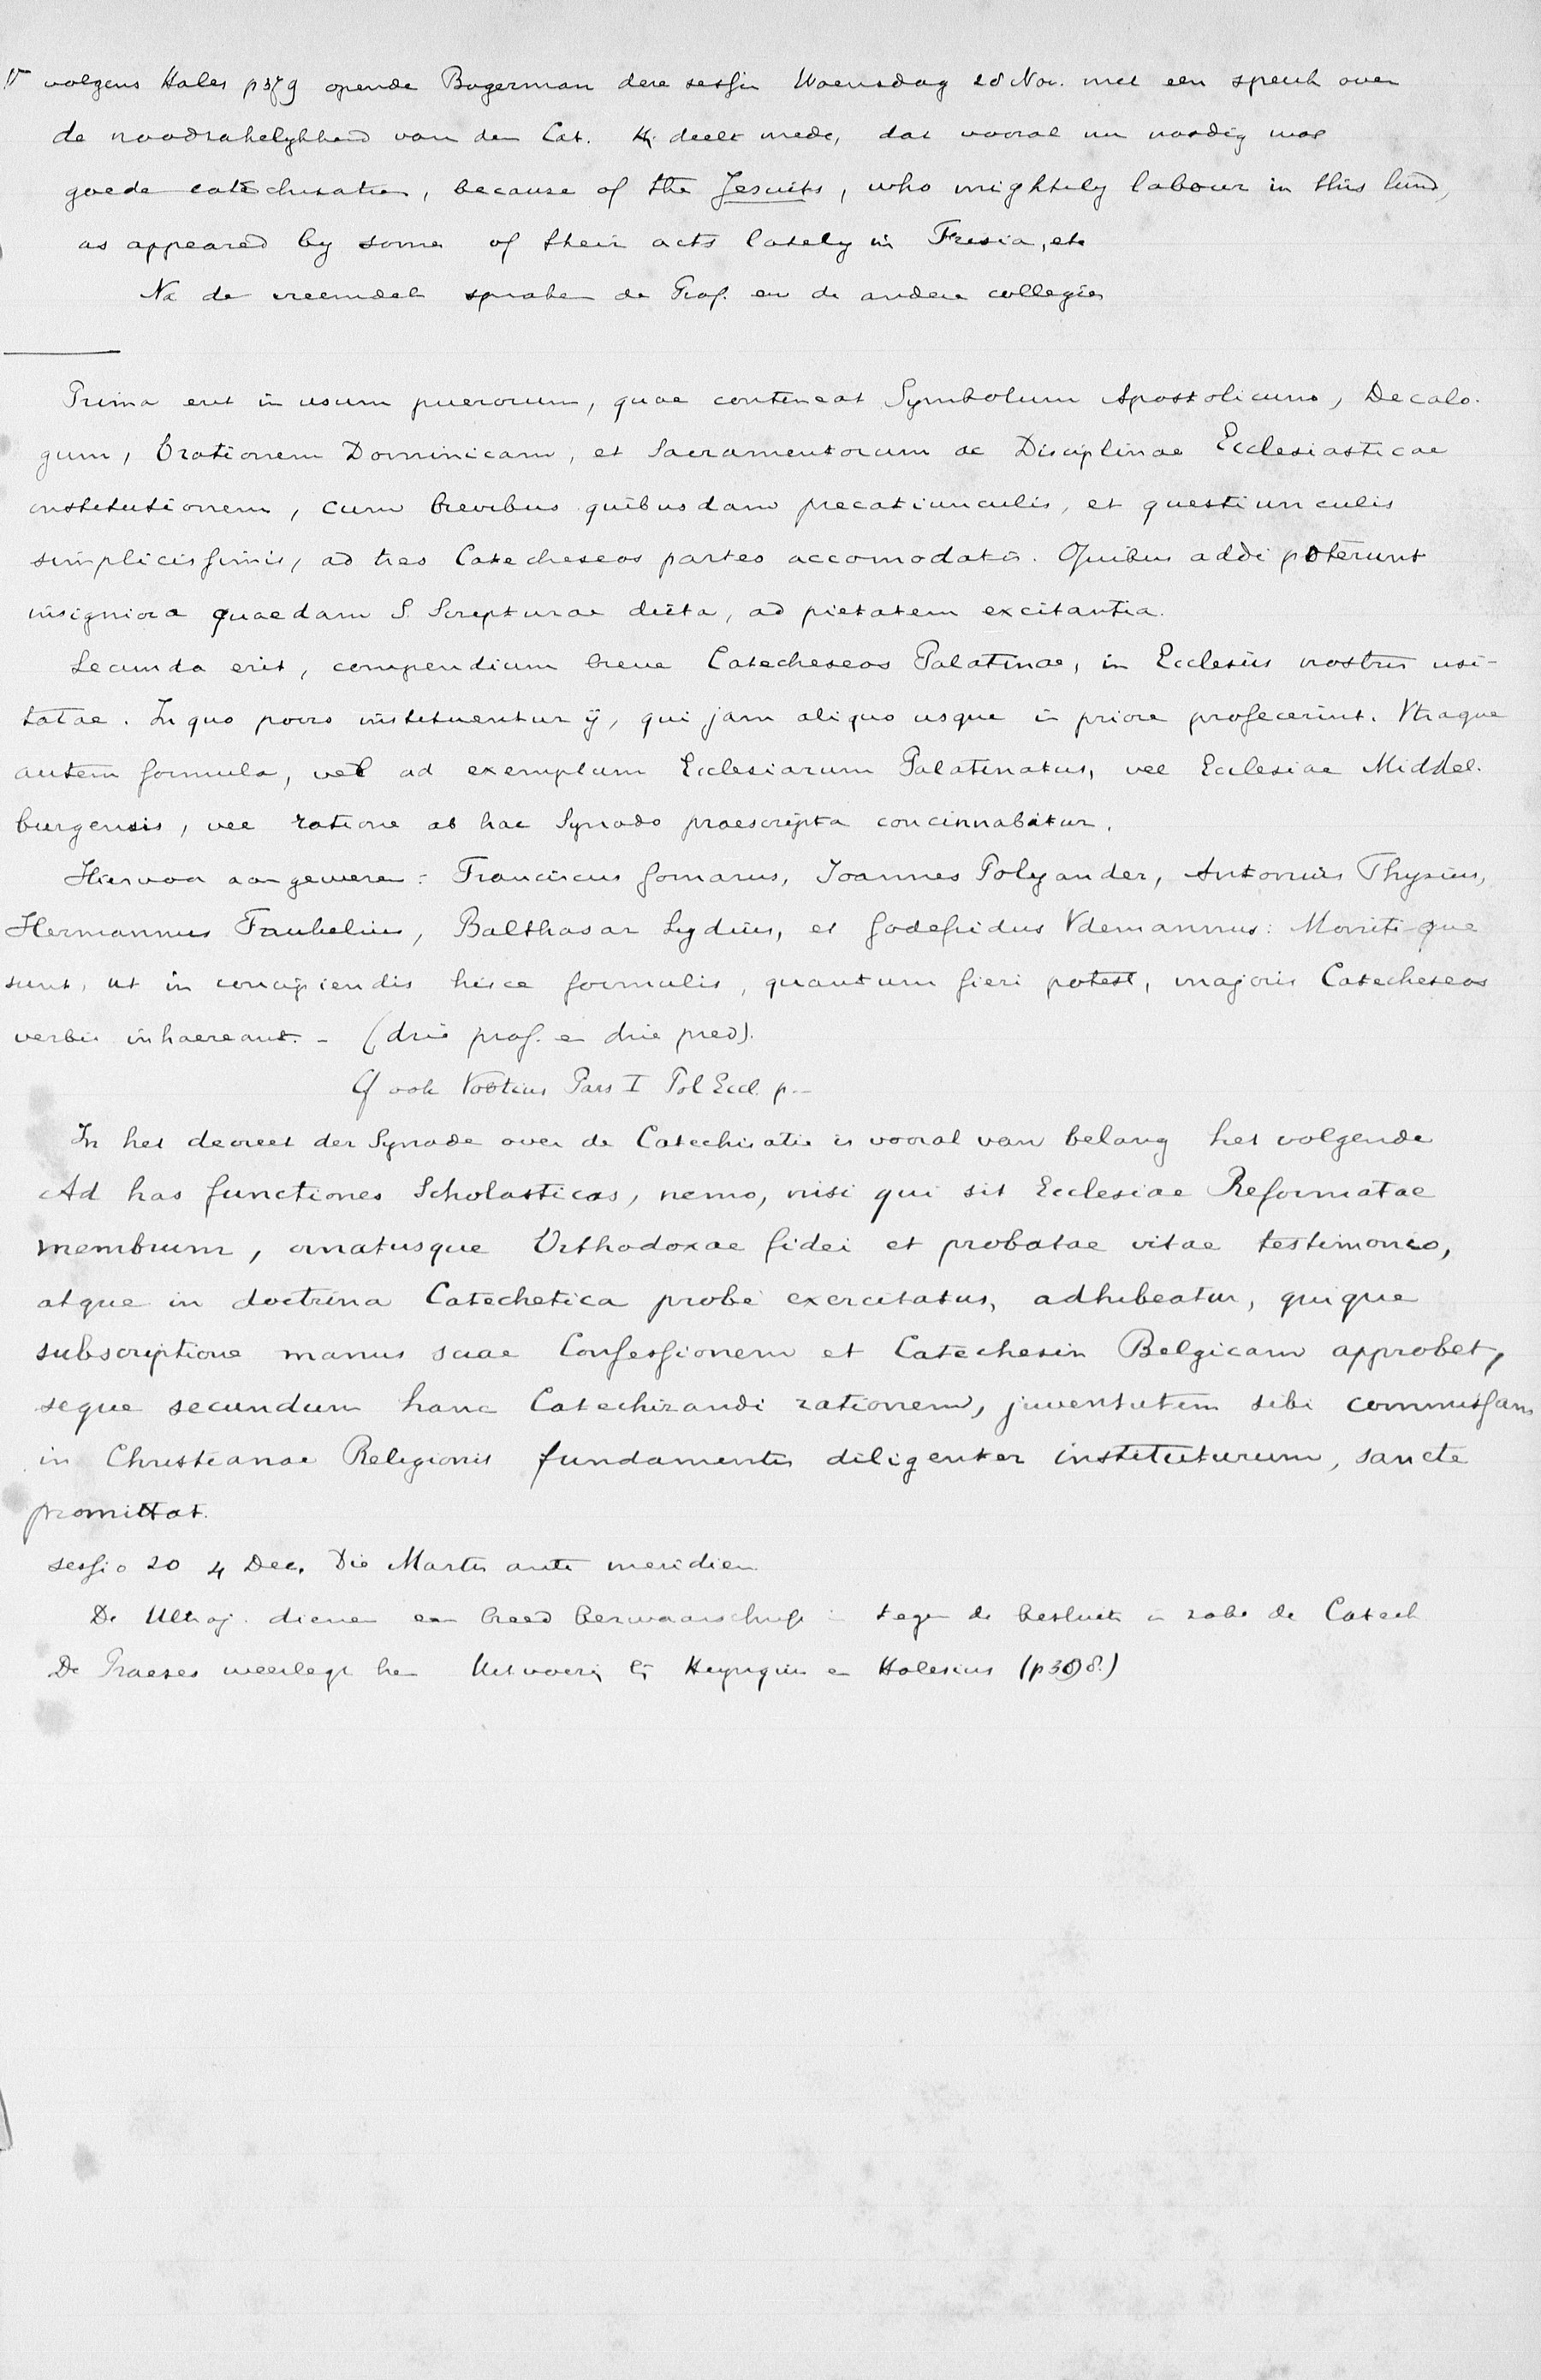 volgens Hales p 379 opende Bogerman deze sessie Woensdag 28 Nov. met een speech over
de noodzakelijkheid van den Cat. Hij deelt mede, dat vooral nu noodig was
goede catechisatie, because of the Jesuits, who mightily labour in this kind,
as appeared by some of their acts lately in Frisia, etc
Na de vreemdel spraken de Prof. en de andere collegies
Prima erit in usum puerorum, quae contineat Symbolum Apostolicum, Decalo-
gum, Orationem Dominicam, et Sacramentorum ac Disciplinae Ecclesiasticae
institutionem, cum brevibus quibusdam precatiunculis, et questiunculis
simplicissimis, ad tres Catecheseos partes accomodatis. Quibus addi poterunt
insigniora quaedam S. Scripturae dicta, ad pietatem excitantia.
Secunda erit, compendium breve Catecheseos Palatinae, in Ecclesiis nostris usi-
tatae. In quo porro instituentur ij, qui jam aliquo usque in priore profecerint. Vtraque
autem formula, vel ad exemplum Ecclesiarum Palatinatus, vel Ecclesiae Middel-
burgensis, vel ratione ab hac Synodo praescripta concinnabitur.
Hiervoor aangewezen: Franciscus Gomarus, Joannes Polyander, Antonius Thysius,
Hermannus Faukelius, Balthasar Lydius, et Godefridus Vdemannus: Monitique
sunt, ut in concipiendis hisce formulis, quantum fieri potest, majoris Catecheseos
verbis inhaereant. - (drie prof. en drie pred).
Cf ook Voetius Pars I Pol Eccl. p.-
In het decreet der Synode over de Catechisatie is vooral van belang het volgende
Ad has functiones Scholasticas, nemo, nisi qui sit Ecclesiae Reformatae
membrum, ornatusque Orthodoxae fidei et probatae vitae testimonio,
atque in doctrina Catechetica probe exercitatus, adhibeatur, quique
subscriptione manus suae Confessionem et Catechesin Belgicam approbet,
seque secundum hanc Catechizandi rationem, juventutem sibi commissam
in Christianae Religionis fundamentis diligenter instituturum, sancte
promittat.
sessio 20 4 Dec. Die Martis ante meridiem
De Ultraj. dienen een breed bezwaarschrift in tegen de besluiten in zake de Catech
De Praeses weerlegt hen Uitvoerig bij Heyngius en Halesius